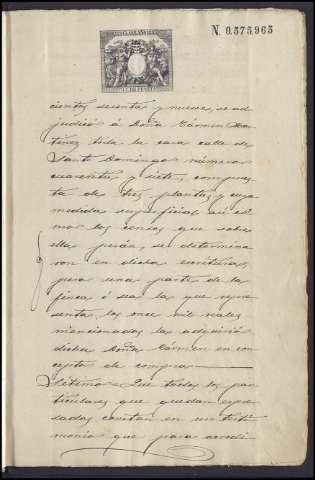 N. 0.575.965
cientos sesenta y nueve, se ad
judicó á Doña Cármen Mar
tinez toda la casa calle de
Santo Domingo número
cuarenta y siete, compues
ta de tres plantas y cuya
medida superficial asi co
mo los censos que sobre
ella pesan, se determina
ron en dicha escritura,
pero una parte de la
finca ó sea la que repre
senta los once mil reales
mencionados la adquirió
dicha Doña Cármen en con
cepto de compra
Sétimo = Que todos los par
ticulares que quedan espre
sados constan en un testi
monio que para acredi-